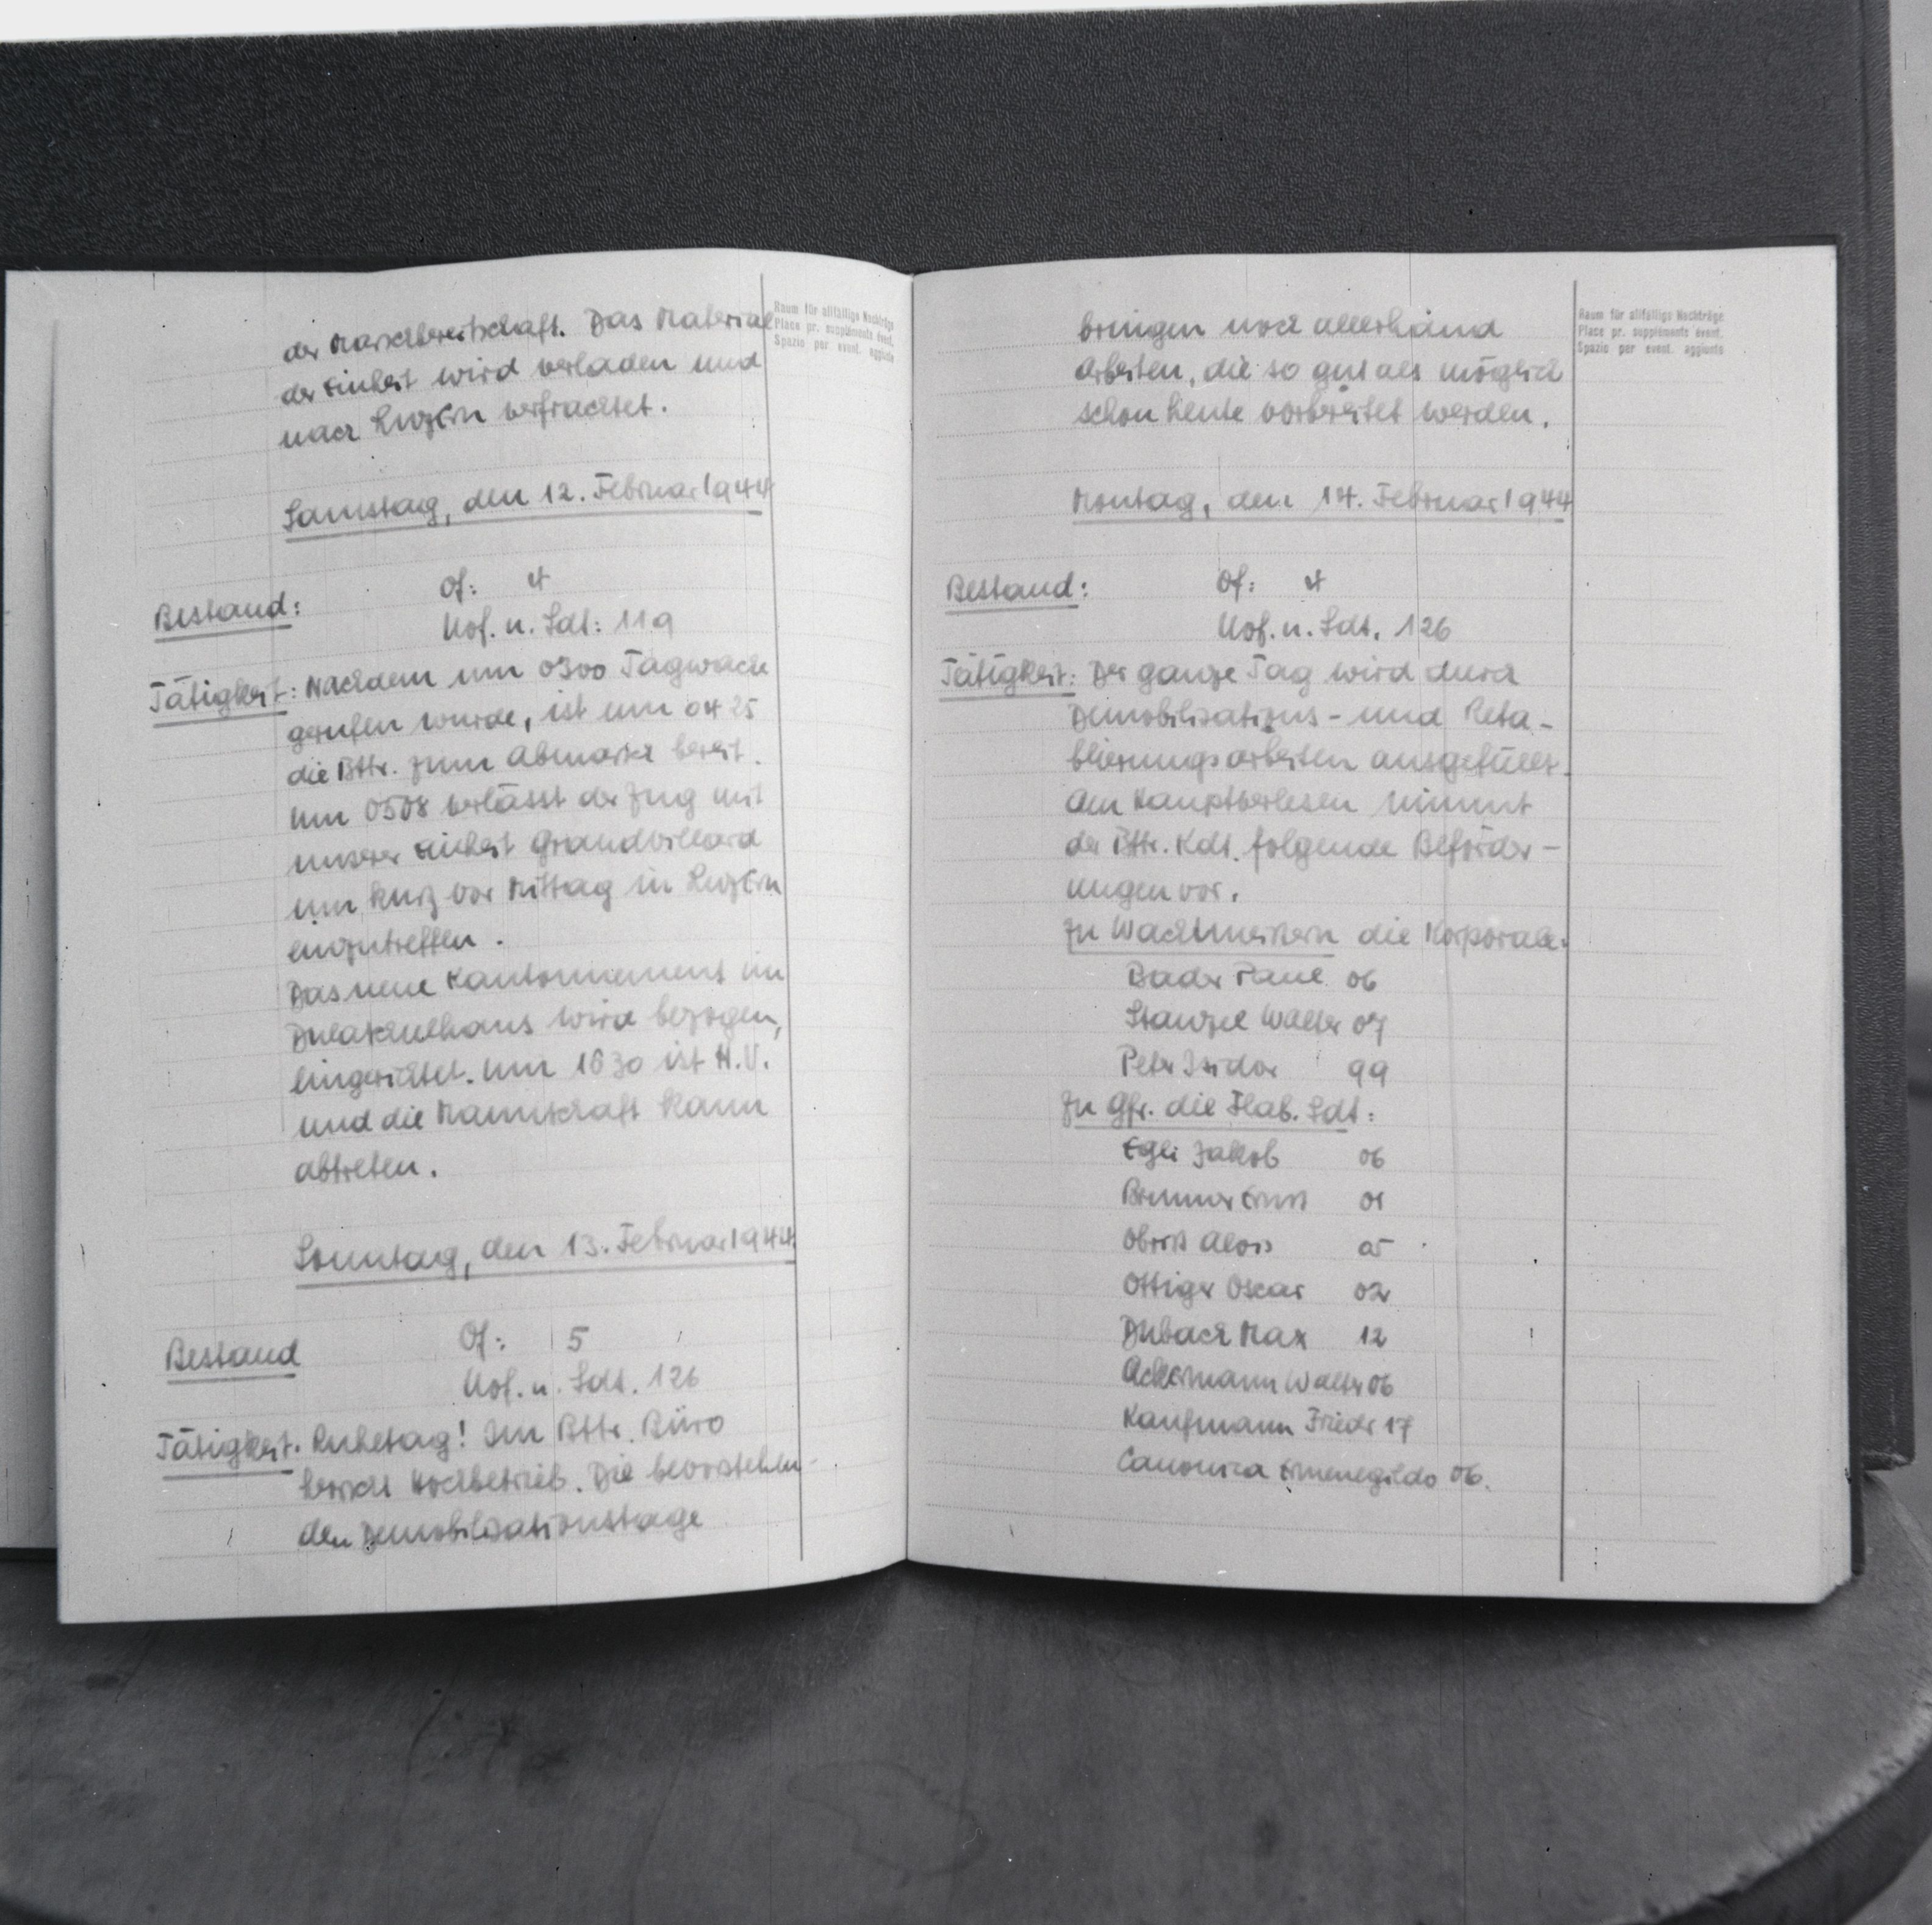 der Marschbereitschaft. Das Material
der Einheit wird verladen und
nach Luzern verfrachtet.
Samstag, den 12. Februar 1944
Bestand: Of: 4
Uof. u. Sdt: 119
Tätigkeit: Nachdem um 0300 Tagwache
gerufen wurde, ist um 0425
die Bttr. zum Abmarsch bereit.
Um 0508 verlässt der Zug mit
unserer Einheit Grandvillard
um kurz vor Mittag in Luzern
einzutreffen.
Das neue Kantonnement im
Dulaschulhaus wird bezogen,
eingerichtet. Um 1630 ist H.V.
und die Mannschaft kann
abtreten.
Sonntag, den 13. Februar 1944
Bestand Of: 5
Uof. u. Sdt. 126
Tätigkeit. Ruhetag! Im Bttr. Büro
herrscht Hochbetrieb. Die bevorstehen-
den Demobilisationstage
Raum für allfällige Nachträge
Place pr. suppléments évent.
Spazio per event. aggiunte
bringen noch allerhand
Arbeiten, die so gut als möglich
schon heute vorbereitet werden.
Montag, den 14. Februar 1944
Bestand: Of: 4
Uof. u. Sdt. 126
Tätigkeit: Der ganze Tag wird durch
Demobilisations- und Reta-
blierungsarbeiten ausgefüllt.
Am Hauptverlesen nimmt
der Bttr. Kdt. folgende Beförder-
ungen vor.
Zu Wachtmeistern die Korporale.
Bader Paul 06
Stanzel Walter 07
Peter Isidor 99
Zu Gfr. die Flab. Sdt:
Egli Jakob 06
Brunner Ernst 01
Obrist Alois 05
Ottiger Oscar 02
Dubach Max 12
Ackermann Walter 06
Kaufmann Friedr 17
Canonica Ermenegildo 06.
Raum für allfällige Nachträge
Place pr. suppléments évent.
Spazio per event. aggiunte